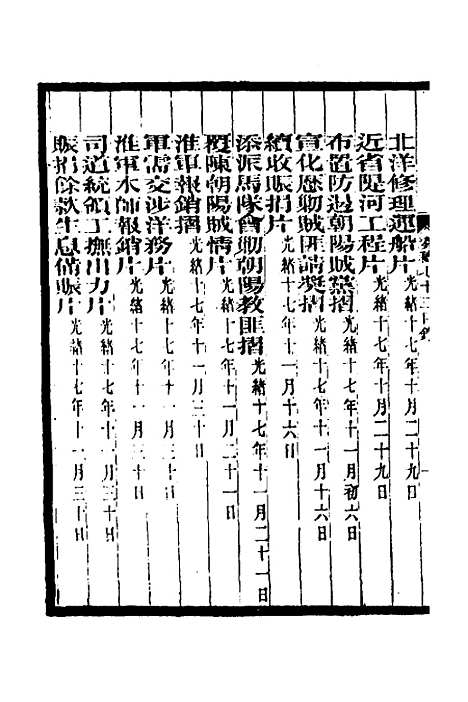 北洋修理運船片光緒十七年十月二十九日
近省隄河工程片光緒十七年十月二十九日
布置防剿朝陽賊黨摺光緒十七年十一月初六日
宣化歷勦賊匪請獎摺光緒十七年十一月十六日
續收賑捐片光緒十七年十一月十六日
添派馬隊會勦朝陽教匪摺光緒十七年十一月二十一日
覆陳朝陽賊情片光緒十七年十一月二十一日
淮軍報銷摺光緒十七年十一月三十日
軍需交涉洋務片光緒十七年十一月三十日
淮軍水師報銷片光緒十七年十一月三十日
司道統領工撫出力片光緒十七年十一月三十日
賑捐餘款生息備賑片光緒十七年十一月三十日